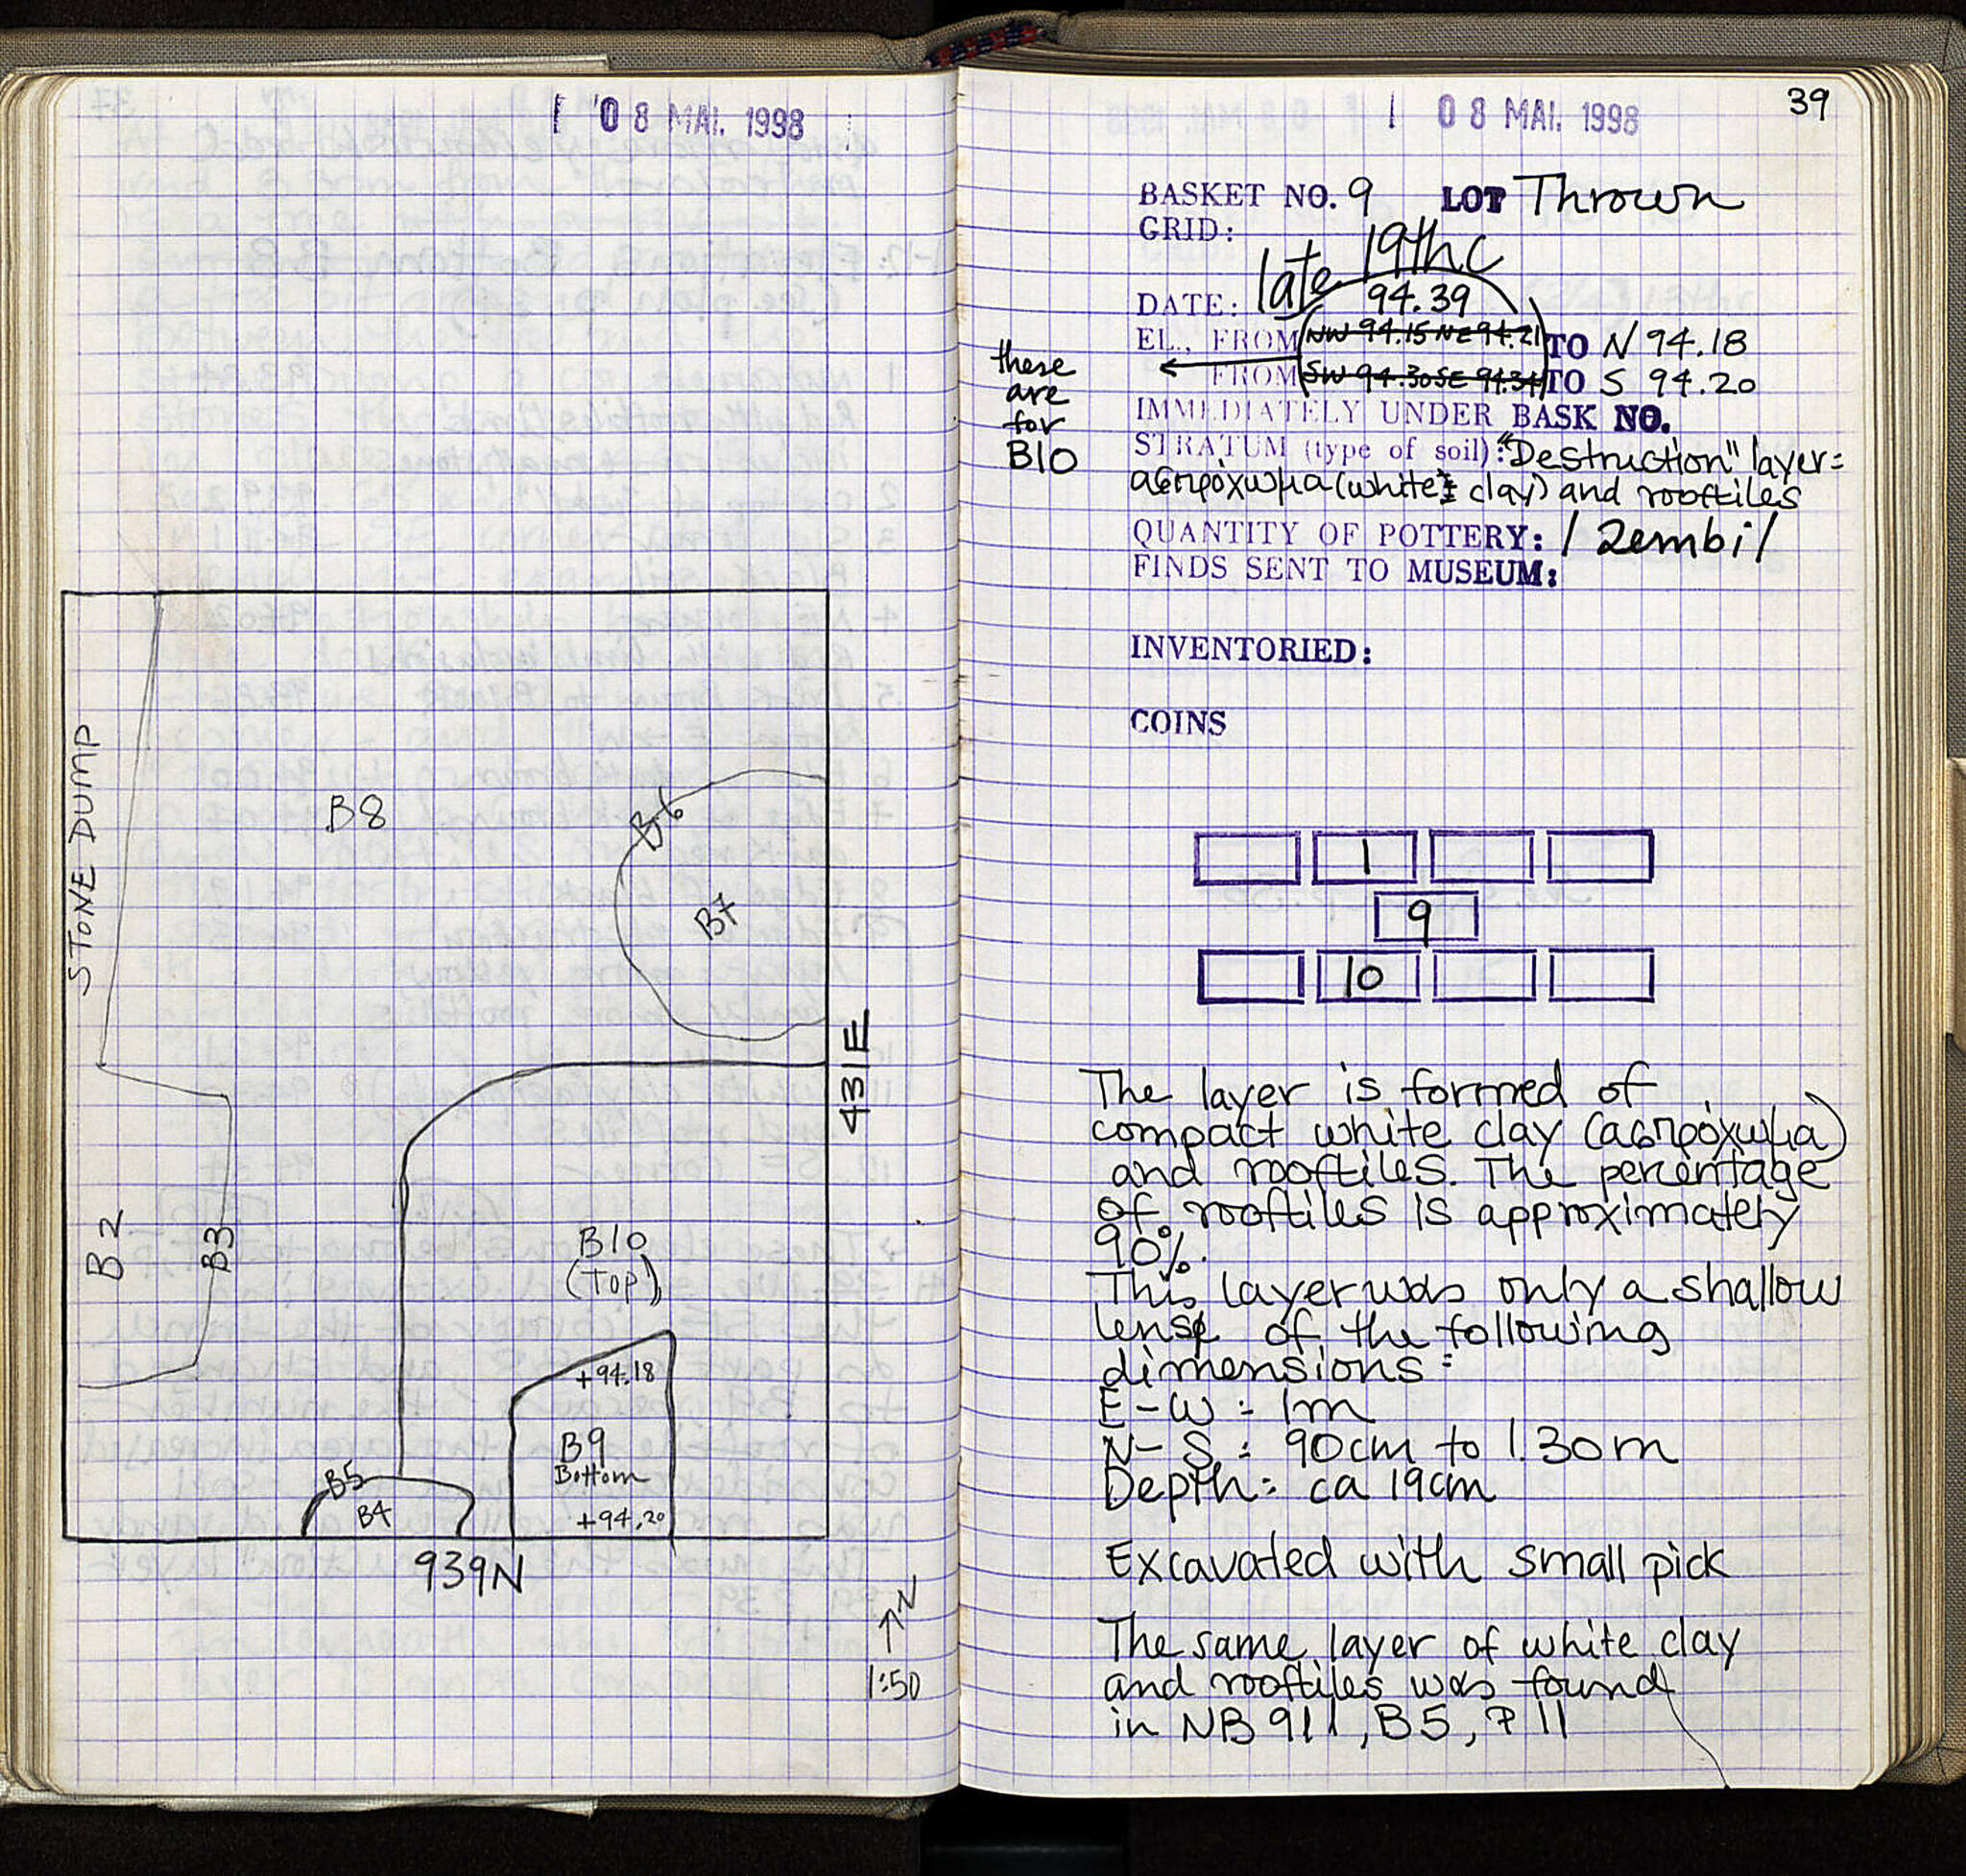 08 MAI. 1998
STONE DUMP
B8
B6
B7
431E
B2
B3
B10
(Top)
+94.18
B9
Bottom
+94.20
B5
B4
939N
N
1:50
08 MAI. 1998
39
BASKET NO. 9 LOT Thrown
GRID:
late 19th c
DATE:
94.39
EL., FROM NW 94.15 NE 94.21 TO N 94.18
FROM SW 94.30 SE 94.34 TO S 94.20
these
are
for
B10
IMMEDIATELY UNDER BASK NO.
STRATUM (type of soil): "Destruction" layer:
ασπρόχωμα (white clay) and rooftiles
QUANTITY OF POTTERY: 1 zembil
FINDS SENT TO MUSEUM:
INVENTORIED:
COINS
1
9
10
The layer is formed of
compact white clay (ασπρόχωμα)
and rooftiles. The percentage
of rooftiles is approximately
90%.
This layer was only a shallow
lense of the following
dimensions:
E-W: 1m
N-S: 90cm to 1.30m
Depth: ca 19cm
Excavated with small pick
The same layer of white clay
and rooftiles was found
in NB 911, B5, P 11